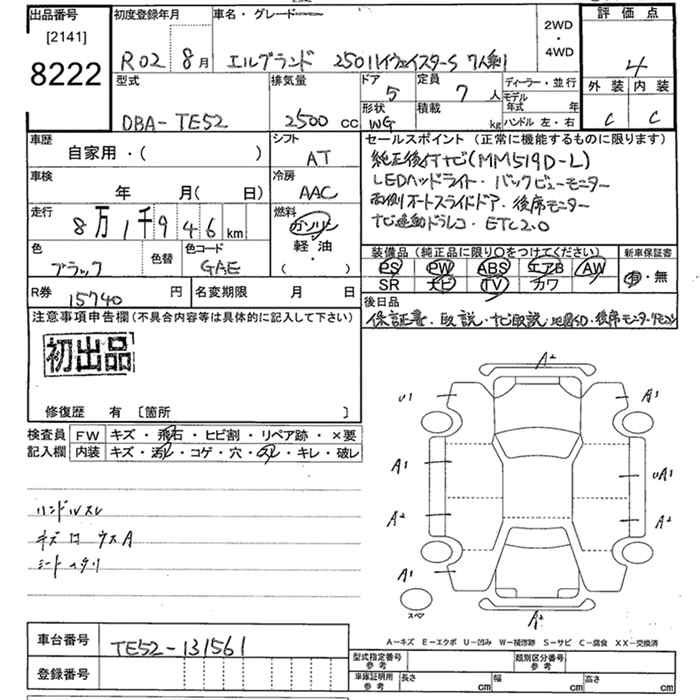 出品番号 初度登録年月 車名・グレード 2WD ・ 4WD 評価点
[2141]
8222
R02 8月 エルグランド 250ハイウェイスターS 7人乗り 4
型式 排気量 ドア 5 定員 7人 ディーラー・並行 外装 内装
DBA-TE52 2500 cc 形状 WG 積載 kg モデル年式 年 ハンドル 左・右 C C
車歴 シフト セールスポイント(正常に機能するものに限ります)
自家用・( ) AT 純正後付ナビ(MM519D-L)
車検 冷房 LEDヘッドライト・バックビューモニター
年 月( 日) AAC 両側オートスライドドア・後席モニター
走行 燃料 ナビ連動ドラレコ・ETC2.0
8万1千946km ガソリン
軽・油
( )
色 色替 色コード 装備品(純正品に限り○をつけてください) 新車保証書
ブラック GAE PS PW ABS エアB AW 有・無
SR ナビ TV カワ
R券 15740円 名変期限 月 日 後日品
保証書・取説・ナビ取説
注意事項申告欄(不具合内容等は具体的に記入して下さい)
初出品
修復歴 有 [箇所 ]
検査員 FW キズ・飛石・ヒビ割・リペア跡・×要
記入欄 内装 キズ・汚レ・コゲ・穴・スレ・キレ・破レ
ハンドルスレ
A2
U1 A1
A1 UA1
A2 A2
A1
A2
スペア
A-キズ E-エクボ U-凹み W-補修跡 S-サビ C-腐食 XX-交換済
車台番号 TE52-131561
型式指定番号 参考 類別区分番号 参考
登録番号
車庫証明用 参考 長さ cm 幅 cm 高さ cm